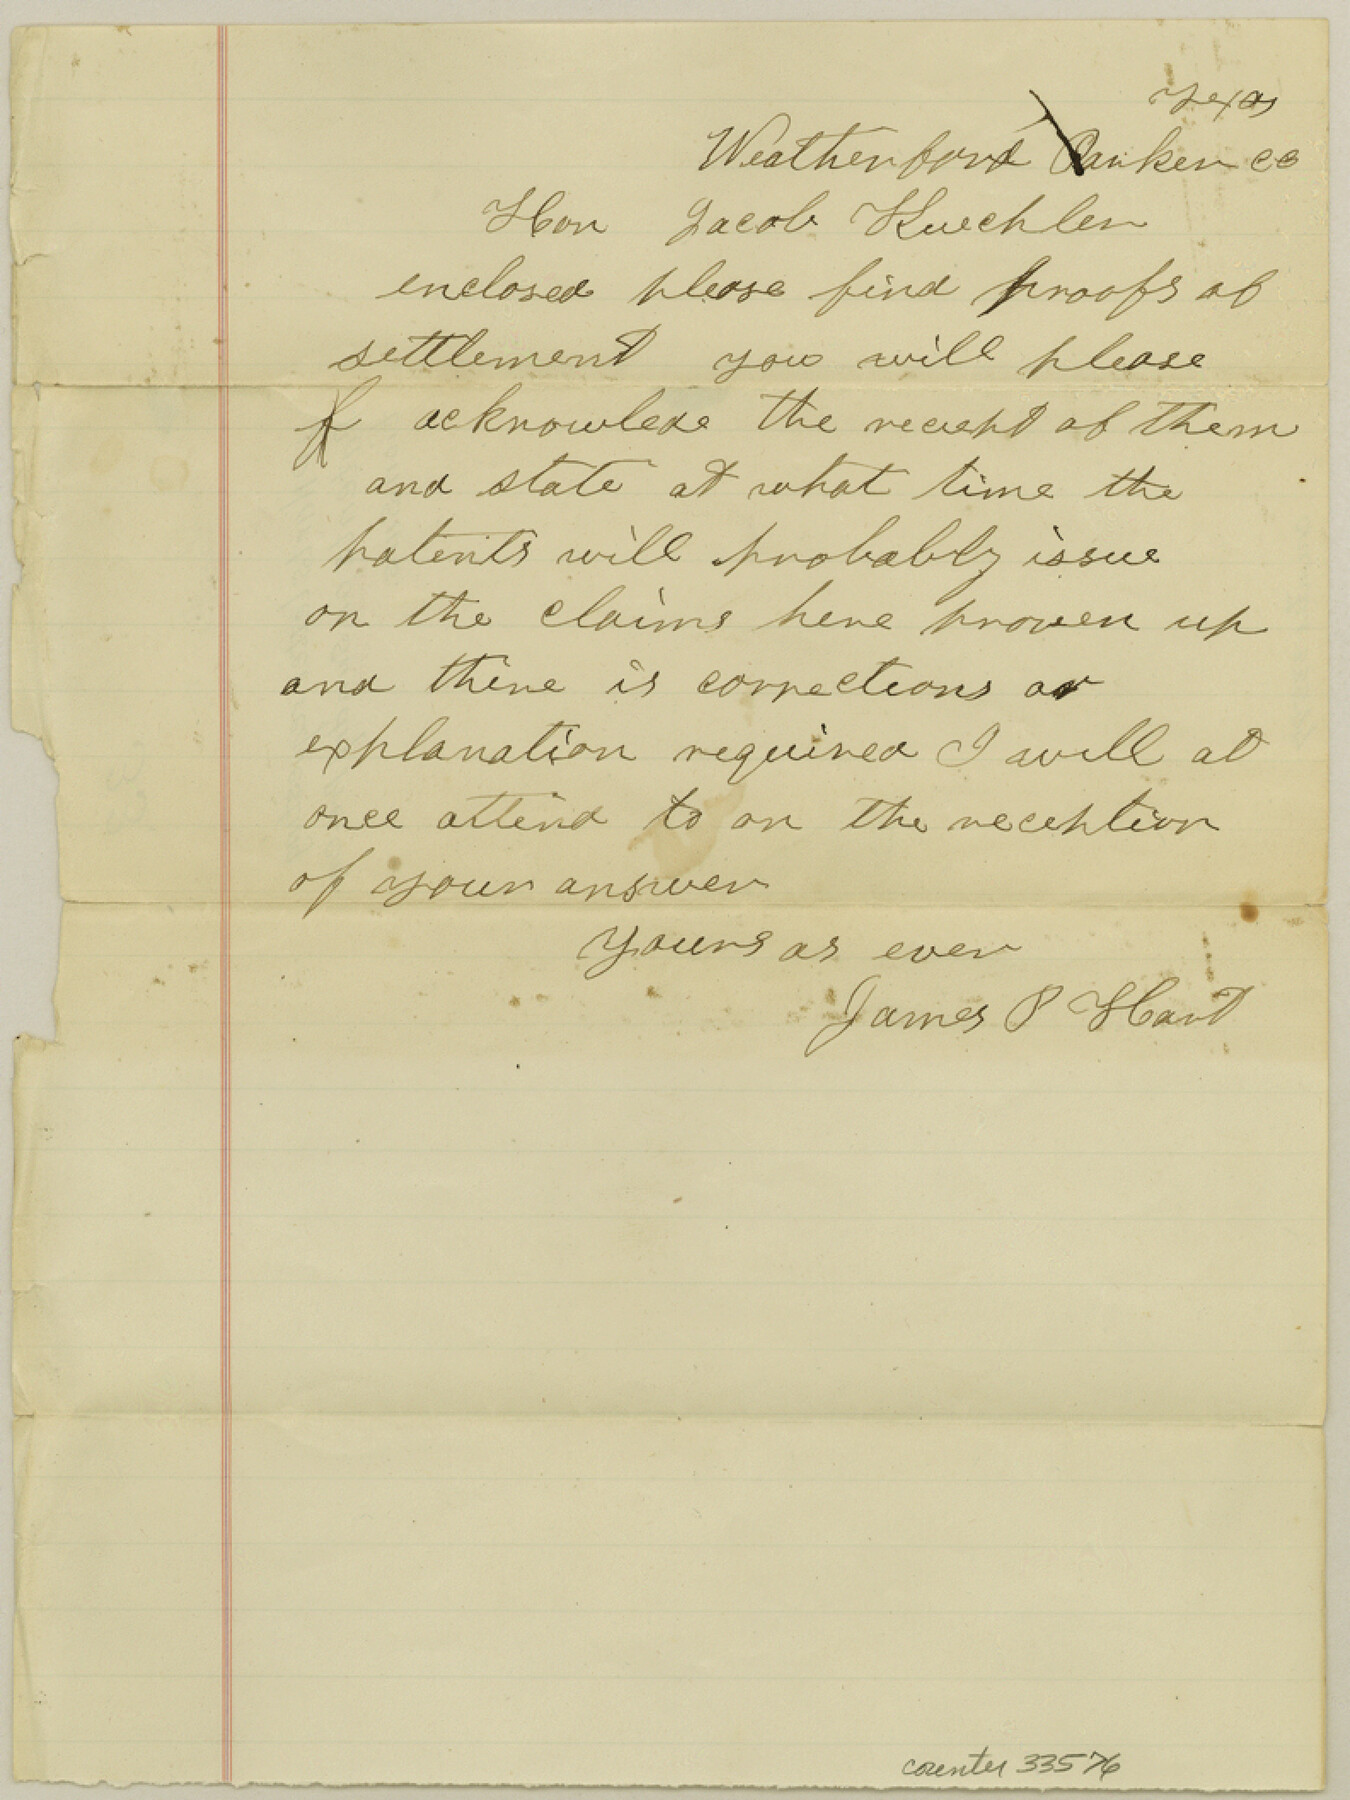 Texas
Weatherford Parker co
Hon Jacob Kuechler
enclosed please find proofs of
settlement you will please
acknowlede the reciept of them
and state at what time the
patents will probably issue
on the claims here proven up
and thire is corrections or
explanation required I will at
once attend to on the reception
of your answer
yours as ever
James P Hart
counter 33576